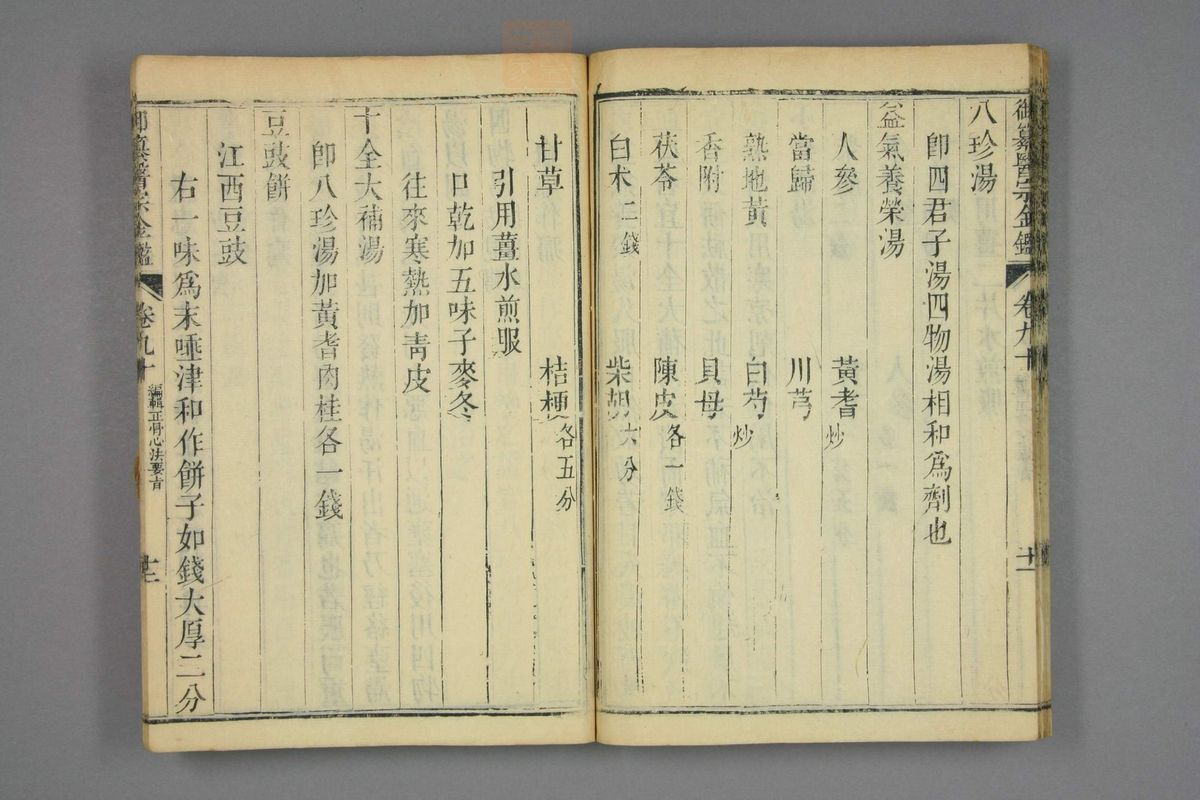 御纂醫宗金鑑 卷九十 十一
八珍湯
卽四君子湯四物湯相和爲劑也
益氣養榮湯
人參 黃耆炒
當歸 川芎
熟地黃 白芍炒
香附 貝母
茯苓 陳皮各一錢
白朮二錢 柴胡六分
甘草 桔梗各五分
引用薑水煎服
口乾加五味子麥冬
往來寒熱加靑皮
十全大補湯
卽八珍湯加黃耆肉桂各一錢
豆豉餠
江西豆豉
右一味爲末唾津和作餠子如錢大厚二分
御纂醫宗金鑑 卷九十 編輯正骨心法要旨 十二